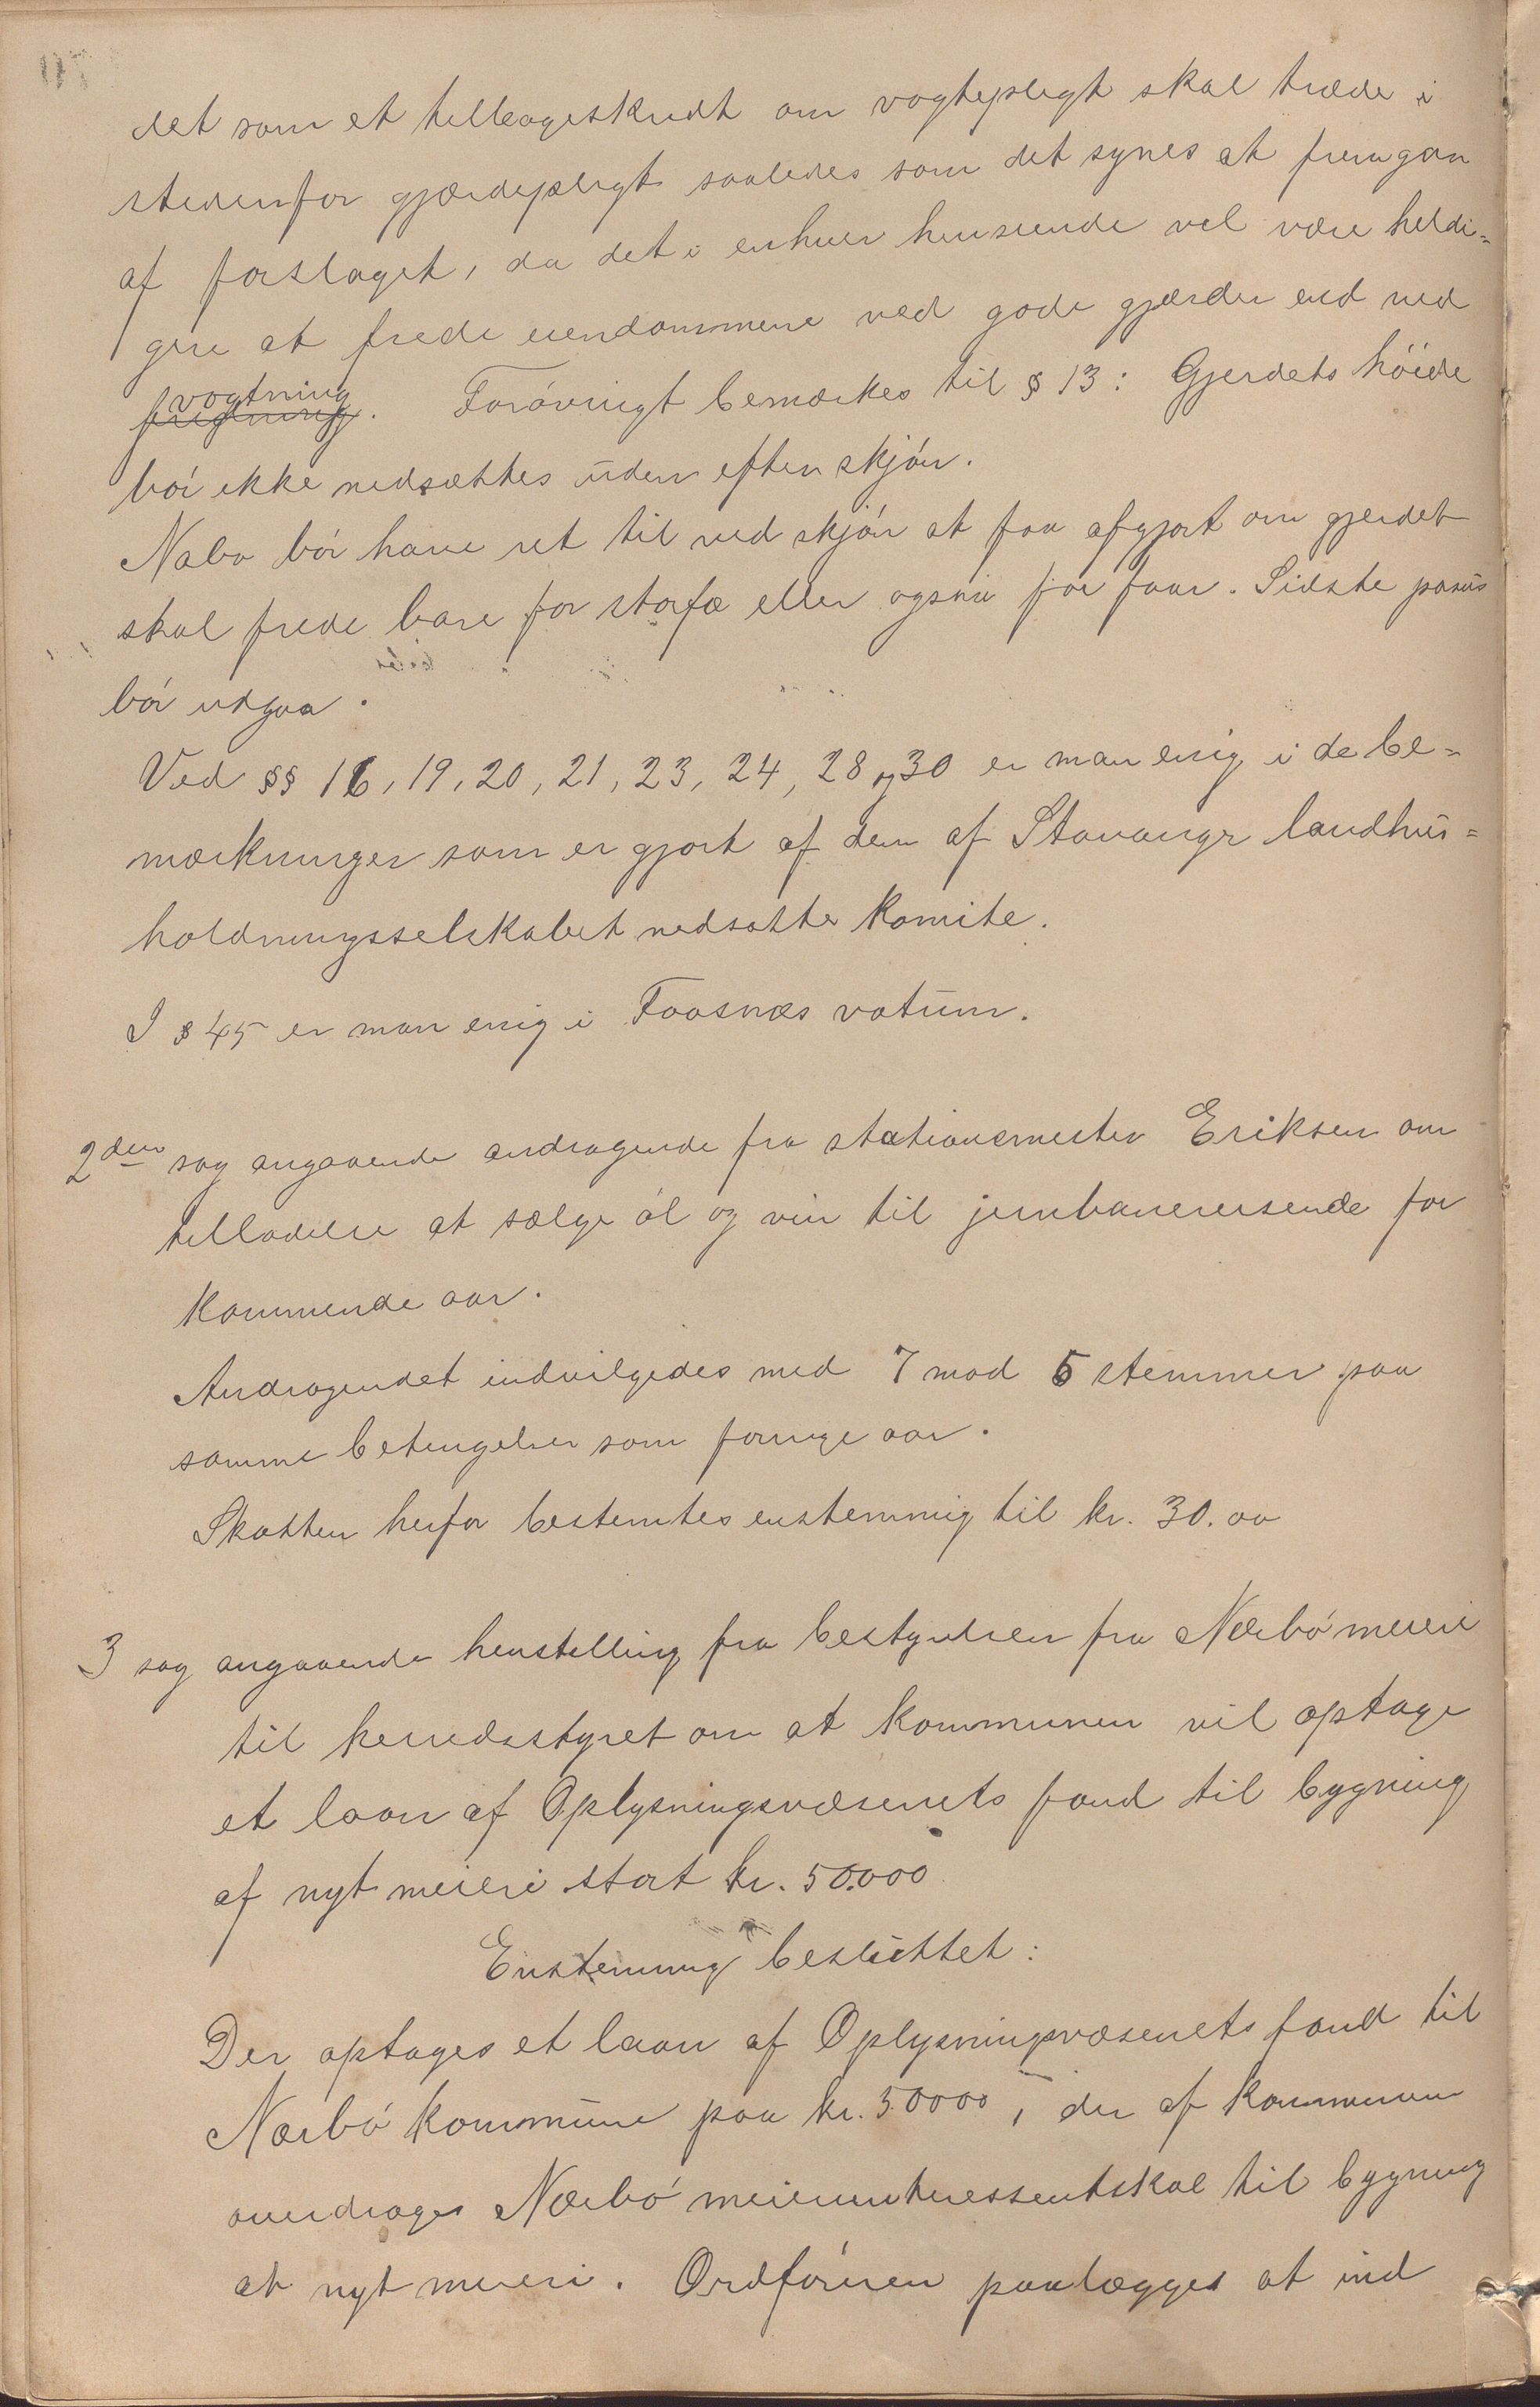 det som et tilbageskridt om vogtepligt skal træde i
stedenfor gjærdepligt saaledes som det synes at fremgaa
af forslaget, da det i enhver henseende vil være heldi=
gere at frede eiendommene ved gode gjærder end ved
vogtning
. Forøvrigt bemærkes til § 13: Gjerdets høide
bør ikke nedsættes uden efter skjøn.
Nabo bør have ret til ved skjøn at faa afgjort om gjerdet
skal frede bare for storfæ eller ogsaa for faar. Sidste pasus
bør udgaa.
Ved §§ 16, 19, 20, 21, 23, 24, 28 og 30 er man enig i de be=
mærkninger som er gjort af den af Stavanger landhus=
holdningsselskabet nedsatte komite.
I § 45 er man enig i Foosnæs votum.
2den sag angaaende andragende fra stationsmester Eriksen om
tilladelse at sælge øl og vin til jernbanereisende for
kommende aar.
Andragendet indvilgedes med 7 mod 5 stemmer paa
samme betingelser som forrige aar.
Skatten herfor bestemtes enstemmig til kr. 30.00
3 sag angaaende henstilling fra bestyrelsen fra Nærbø meieri
til herredsstyret om at kommunen vil optage
et laan af Oplysningsvæsenets fond til bygning
af nyt meieri stort kr. 50.000
Enstemmig besluttet:
Der optages et laan af Oplysningsvæsenets fond til
Nærbø kommune paa kr. 50000, der af kommunen
overdrages Nærbø meieriinteressentskab til bygning
at nyt meieri. Ordføreren paalægges at ind